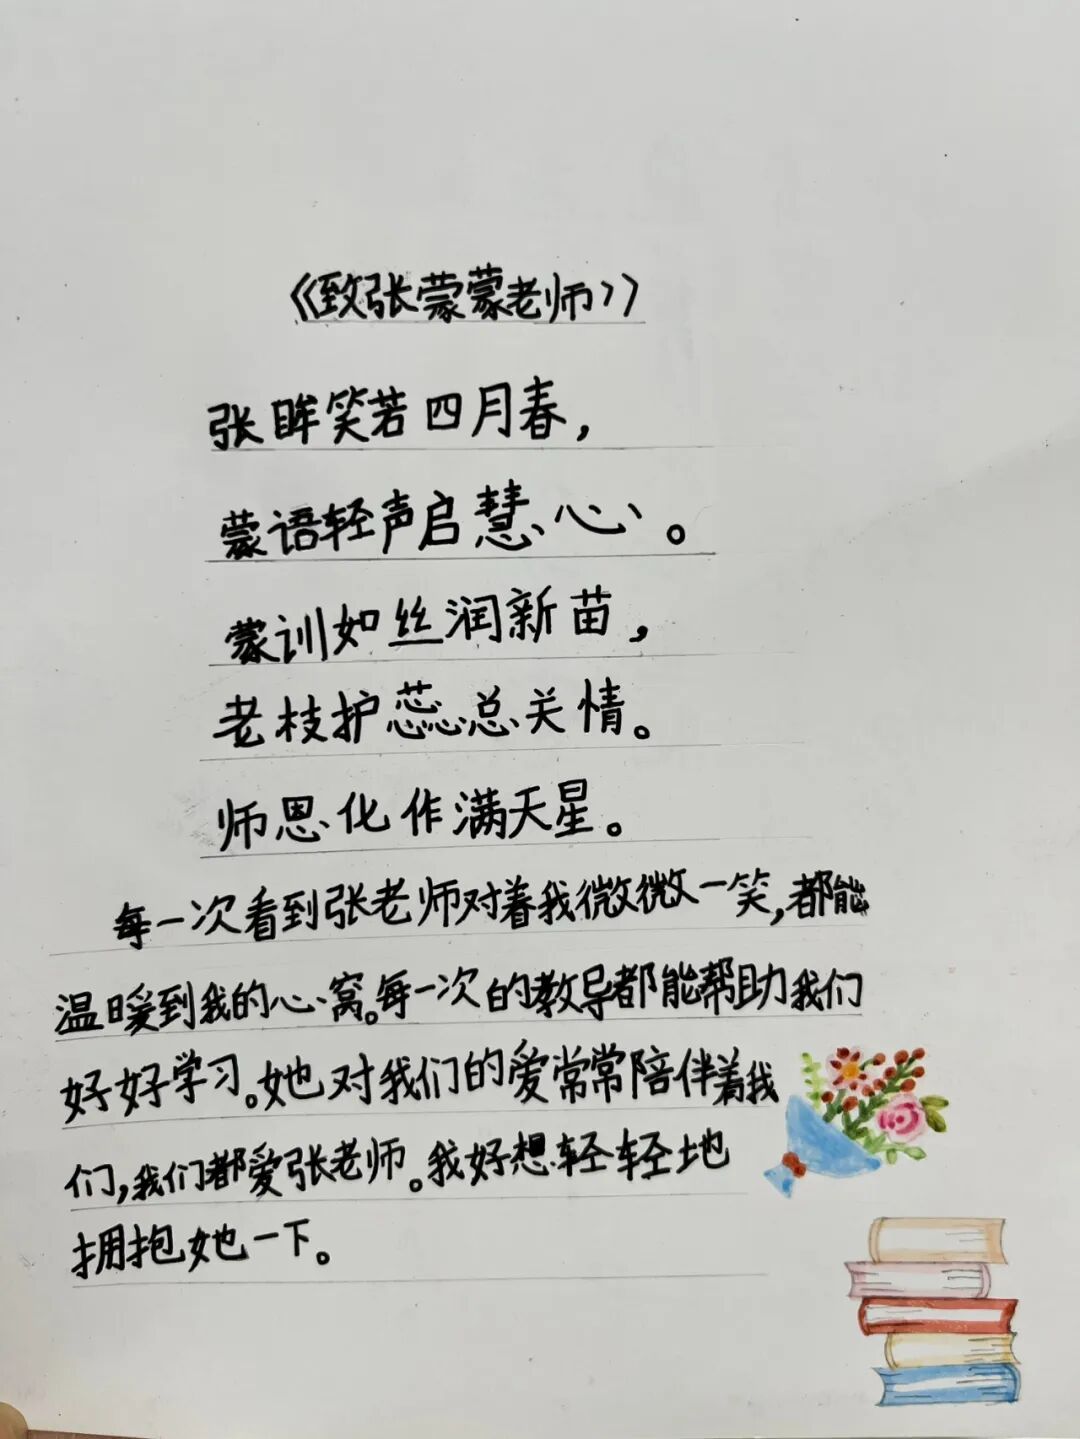 《致张蒙蒙老师》
张眸笑若四月春，
蒙语轻声启慧心。
蒙训如丝润新苗，
老枝护蕊总关情。
师恩化作满天星。
每一次看到张老师对着我微微一笑，都能
温暖到我的心窝。每一次的教导都能帮助我们
好好学习。她对我们的爱常常陪伴着我
们，我们都爱张老师。我好想轻轻地
拥抱她一下。